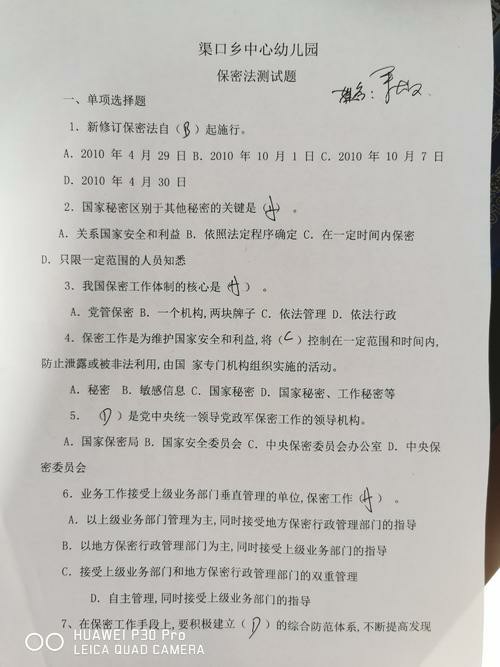 渠口乡中心幼儿园
保密法测试题
姓名:
一、单项选择题
1. 新修订保密法自(B)起施行。
A. 2010 年 4 月 29 日 B. 2010 年 10 月 1 日 C. 2010 年 10 月 7 日
D. 2010 年 4 月 30 日
2. 国家秘密区别于其他秘密的关键是(A)。
A. 关系国家安全和利益 B. 依照法定程序确定 C. 在一定时间内保密
D. 只限一定范围的人员知悉
3. 我国保密工作体制的核心是(A)。
A. 党管保密 B. 一个机构,两块牌子 C. 依法管理 D. 依法行政
4. 保密工作是为维护国家安全和利益,将(C)控制在一定范围和时间内,
防止泄露或被非法利用,由国 家专门机构组织实施的活动。
A. 秘密 B. 敏感信息 C. 国家秘密 D. 国家秘密、工作秘密等
5. (D)是党中央统一领导党政军保密工作的领导机构。
A. 国家保密局 B. 国家安全委员会 C. 中央保密委员会办公室 D. 中央保
密委员会
6. 业务工作接受上级业务部门垂直管理的单位,保密工作(A)。
A. 以上级业务部门管理为主,同时接受地方保密行政管理部门的指导
B. 以地方保密行政管理部门为主,同时接受上级业务部门的指导
C. 接受上级业务部门和地方保密行政管理部门的双重管理
D. 自主管理,同时接受上级业务部门的指导
7、在保密工作手段上,要积极建立(D)的综合防范体系,不断提高发现
HUAWEI P30 Pro
LEICA QUAD CAMERA